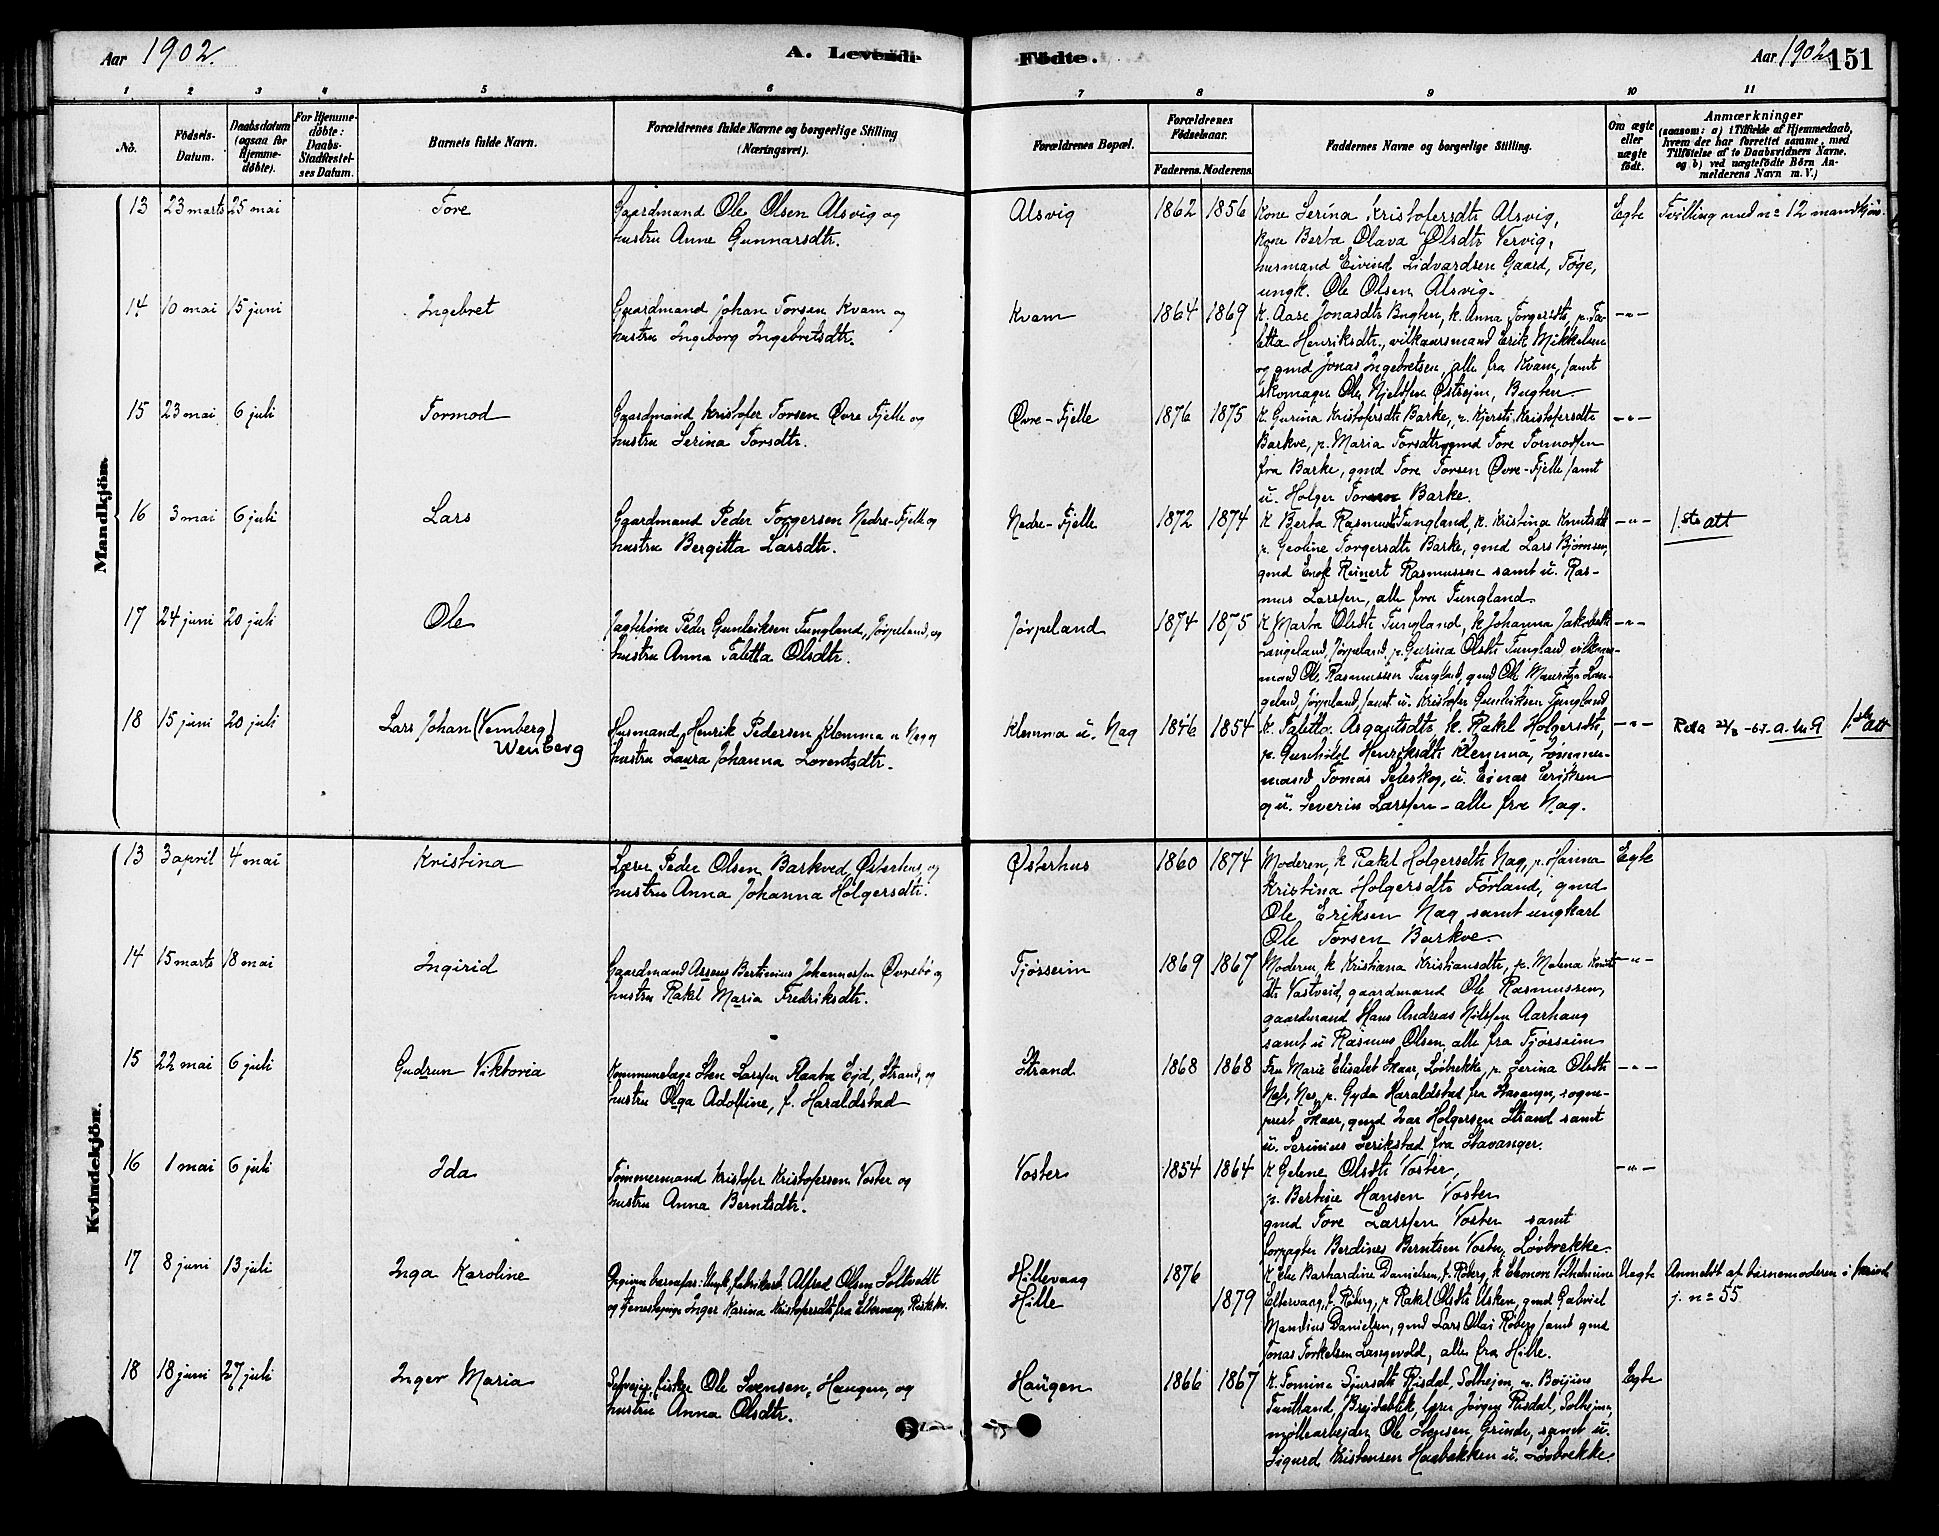 Aar 1902.
A. Levende Fødte.
Aar 1902
151
1 2 3 4 5 6 7 8 9 10 11
No.
Fødsels-Datum.
Daabsdatum (ogsaa for Hjemme-døbte).
For Hjemme-døbte: Daabs-Stadfæstel-ses Datum.
Barnets fulde Navn.
Forældrenes fulde Navne og borgerlige Stilling
(Næringsvei).
Forældrenes Bopæl.
Forældrenes Fødselsaar.
Faderens. Moderens.
Faddernes Navne og borgerlige Stilling.
Om ægte eller uægte født.
Anmærkninger
(saasom: a) i Tilfælde af Hjemmedaab, hvem der har forrettet samme, med Tilføielse af to Daabsvidners Navne. og b) ved uægtefødte Børn Anmelderens Navn m. V.)
Mandkjön.
13 23 marts 25 mai Tore
Gaardmand Ole Olsen Alsvig og
hustru Anne Gunnarsdtr.
Alsvig 1862 1856
Kone Serina Kristofersdtr Alsvig,
Kone Berta Olava Olsdtr Vervig,
husmand Eivind Lidvardsen Gaard, Föge,
ungk. Ole Olsen Alsvig.
Egte Tvilling med no 12 mandkjön.
14 10 mai 15 juni Ingebret
Gaardmand Johan Torsen Kvam og
hustru Ingeborg Ingebretsdtr.
Kvam 1864 1869
K. Aase Jonasdtr Bugten, k. Anna Torgersdtr, p. Ta-
letta Henriksdtr., vilkaarsmand Erik Mikkelsen
og gmd Jonas Ingebretsen, alle fra Kvam, samt
skomager Ole Njelsen Østreim, Bugten
-"-
15 23 mai 6 juli Tormod
Gaardmand Kristofer Torsen Øvre Fjelle og
hustru Serina Torsdtr.
Øvre-Fjelle 1876 1875
K. Gurina Kristofersdtr Barke, p. Kjersti Kristofersdtr
Barkve, p. Maria Torsdtr, gmd Tore Tormodsen
fra Barke, gmd Tore Torsen Øvre-Fjelle samt
u. Holger Torsen Barke.
-"-
16 3 mai 6 juli Lars
Gaardmand Peder Torgersen Nedre-Fjelle og
hustru Bergitta Larsdtr.
Nedre-Fjelle 1872 1874
K. Berta Rasmusdt Tungland, k. Kristina Knutsdtr
p. Geoline Torgersdtr Barke, gmd Lars Bjørnsen,
gmd Enok Reinert Rasmussen samt u. Ras-
mus Larssen, alle fra Tungland
-"- 1.ste att
17 24 juni 20 juli Ole
Jagtfører Peder Gunleiksen Tungland, Jørpeland, og
hustru Anna Taletta Olsdtr.
Jørpeland 1874 1875
K. Marta Olsdtr Tungland, k. Johanna Jakobsdt
Langeland, Jørpeland, p. Gurina Olsdtr Tungland vilkaars-
mand Ole Rasmussen Tungland, gmd Ole Mauritz Lan-
geland, Jørpeland, samt u. Kristofer Gunleiksen Tungland
-"-
18 15 juni 20 juli Lars Johan (Vemberg)
Wenberg
Husmand Henrik Pedersen Klemma u. Nag og
hustru Laura Johanna Lorentsdtr.
Klemma u. Nag 1846 1854
K. Taletta Asgautsdtr, k. Rakel Holgersdtr,
p. Gunhild Henriksdtr Klemma, tømmer-
mand Tomas Seleskog, u. Einar Eriksen
og u. Severin Larssen - alle fra Nag.
-"- 1.ste att
Kvindekjön.
13 3 april 4 mai Kristina
Lærer Peder Olsen Barkved, Østerhus, og
hustru Anna Johanna Holgersdtr.
Østerhus 1860 1874
Moderen, k. Rakel Holgersdtr Nag, p. Harina
Kristina Holgersdtr Førland, gmd
Ole Eriksen Nag samt ungkarl
Ole Torsen Barkve.
Egte
14 15 marts 18 mai Ingirid
Gaardmand Assens Bertinius Johannessen Øvrebø og
hustru Rakel Maria Fredriksdtr.
Tjøsseim 1869 1867
Moderen, k. Kristiana Kristiansdtr, p. Malena Knuts-
dtr Vastveid, gaardmand Ole Rasmussen,
gaardmand Hans Andreas Nilssen Aarhaug
samt u. Rasmus Olsen, alle fra Tjøsseim
-"-
15 22 mai 6 juli Gudrun Viktoria
Kommunelæge Sten Larssen Raaba Ejd, Strand, og
hustru Olga Adolfine, f. Haraldstad
Strand 1868 1868
Fru Marie Elisabet Skaar, Løbrekke, p. Serina Olsdtr
Næs, Nes, p. Gyda Haraldstad fra Stavanger, sogne-
prest Skaar, gmd Ivar Holgersen Strand samt
u. Serinius Serikstad fra Stavanger.
-"-
16 1 mai 6 juli Ida
Tømmermand Kristofer Kristofersen Voster og
hustru Anna Berntsdtr.
Voster 1854 1864
K. Gelene Olsdtr Voster,
p. Bertine Hansen Voster
gmd Tore Larssen Voster samt
forpagter Berdines Berntsen Voster, Løvbrekke.
-"-
17 8 juni 13 juli Inga Karoline
Opgiven barnefar: Ungk., fabrikarb. Alfred Olsen Soltvedt
og tjenestepige Inger Karina Kristofersdtr fra Eltervaag, Riskekv.
Hillevaag 1876
Hille 1879
K. Else Barhardine Danielsen, f. Røberg, k. Elenore Vilhelmine
Eltervaag, f. Røberg, p. Rakel Olsdtr Usken, gmd Gabriel
Mandius Danielsen, gmd Lars Olai Røberg samt gmd
Jonas Torkelsen Langevold, alle fra Hille.
Uegte
Anmeldt af barnemoderen i ministr
j. no 55
18 18 juni 27 juli Inger Maria
Selveier, fisker Ole Svensen, Haugen, og
hustru Anna Olsdtr.
Haugen 1866 1867
K. Tomine Sjursdtr Risdal, Solhejm, p. Borjine
Tuntland, Brejdablik, lærer Jørgen Risdal, Solhejm,
møllearbejder Ole Stensen, Grinde, samt u.
Sigurd Kristensen Haabakken u. Løvbrekke.
Egte